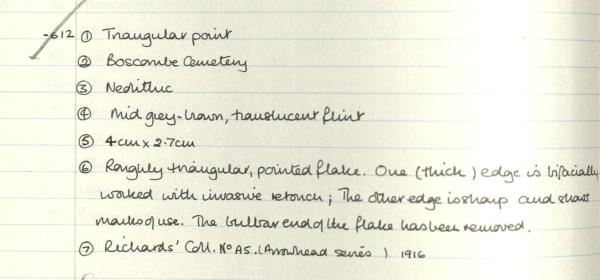 -612 ① Triangular point
② Boscombe Cemetery
③ Neolithic
④ Mid grey-brown, translucent flint
⑤ 4cm x 2.7cm
⑥ Roughly triangular, pointed flake. One (thick) edge is bifacially
worked with invasive retouch; The other edge is sharp and shows
marks of use. The bulbar end of the flake has been removed.
⑦ Richards' Coll. No A5. (Arrowhead series) 1916